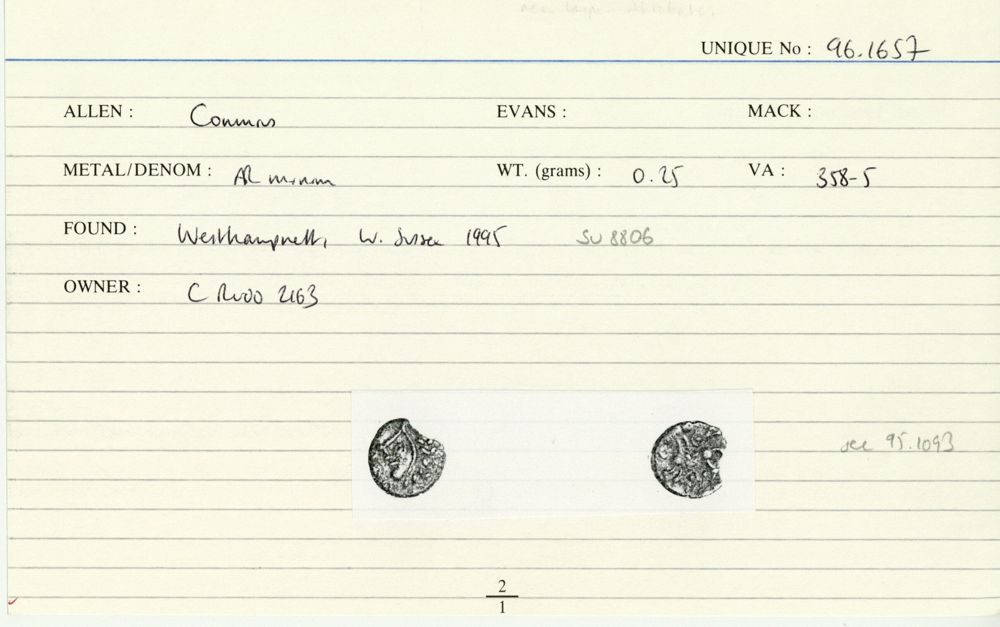 UNIQUE No : 96.1657
ALLEN : Commius EVANS : MACK :
METAL/DENOM : AR minim WT. (grams) : 0.25 VA : 358-5
FOUND : Westhampnett, W. Sussex 1995 SU 8806
OWNER : C RUDD 2163
see 95.1093
2
1